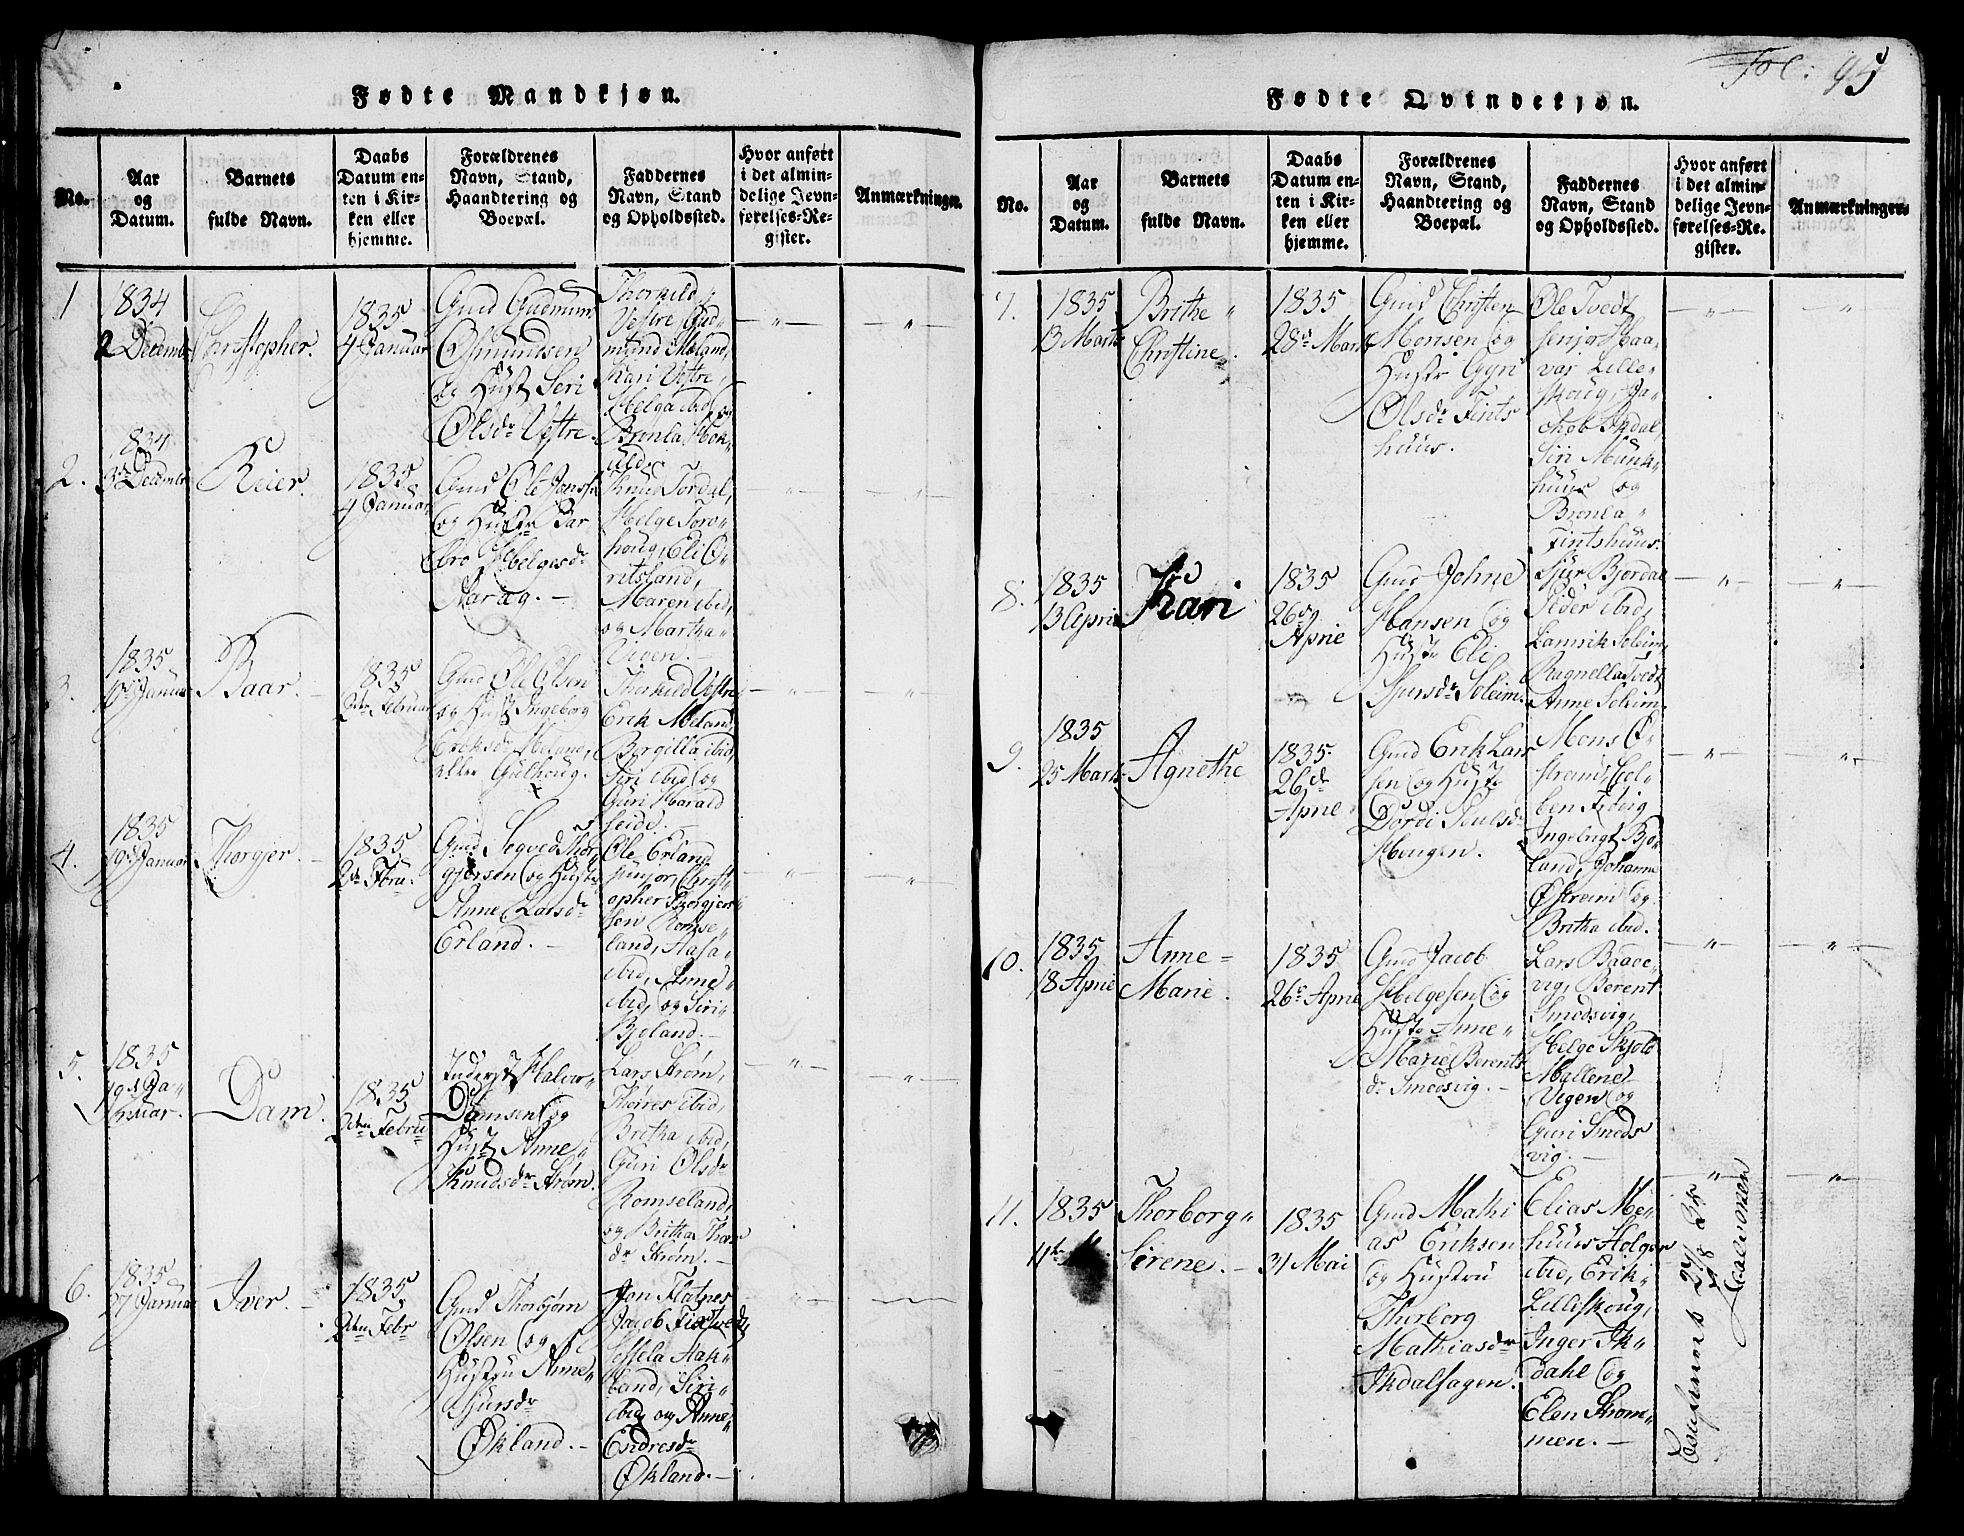 Fødte Mandkjøn.
No.
Aar
og
Datum.
Barnets
fulde Navn.
Daabs
Datum en-
ten i Kir-
ken eller
hjemme.
Forældrenes
Navn, Stand,
Haandtering og
Boepæl.
Faddernes
Navn, Stand
og Opholdssted.
Hvor anført
i det almin-
delige Jevn-
førelses-Re-
gister.
Anmærkninger.
1
1834
2 Decembr
Christopher.
1835
4 Januar
Gmd Gudmun
Osmundsen
og Hust Seri
Olsdr Vestre.
Thorkild
Vestre, Gud-
mund Meland,
Kari Vestre,
Helga ibid, og
Bronla
2.
834
Decembr
Reier.
1835
4 Januar
Gmd Ole Jons
og Hustr Bar
bro Helgesdr
Aarag.
Knud Tordal,
Helge Toro-
houg, Eli Ø-
ritsland,
Maren ibid,
og Martha
Vigen.
3.
1835
Januar
Baar.
1835
2den Februar
Gmd Ole Olsen
og Hust Ingeborg
Eriksdr Meland,
eller Gulhoug.
Thorkild Vestre
Erik Meland,
Borgilla ibid,
Siri ibid og
Guri Harald
seide.
4.
1835
19d Januar
Thorgjer.
1835
2den Febru.
Gmd Segved Thor
gjersen og Hustr
Anne Larsdr
Erland.
Ole Erland
senjor, Christ
opher Thorgjer
sen Romse
land, Aasa
ibid, Anne
ibid, og Siri
Bjoland.
5.
1835
19d Ja-
nuar.
Dam.
1835
2den Febru
Inderst Halvor
Damsen og
Hust Anne
Knudsdr Strøm.
Lars Strøm,
Thores ibid,
Britha ibid,
Guri Olsdr
Romseland,
og Britha Thor
dr Strøm.
6.
1835
27 Januar
Iver.
1835
2den Febr
Gmd Thorbjørn
Olsen og
Hustru Anne
Sjursdr
Økland.
Jon Flatnes
Jacob Fixtvedt
Sessela Aak-
land, Siri
ibid, og Anne
Endresdr
Økland.
Fol: 95
Fødte Qvindekjøn.
No.
Aar
og
Datum.
Barnets
fulde Navn.
Daabs
Datum en-
ten i Kir-
ken eller
hjemme.
Forældrenes
Navn, Stand,
Haandtering og
Boepæl.
Faddernes
Navn, Stand
og Opholdssted.
Hvor anført
i det almin-
delige Jevn-
førelses-Re-
gister.
Anmærkninger.
7.
1835
13 Marts
Brithe
Christine.
1835
28d Marts
Gmd Christen
Monsen og
Hustr Gyri
Olsdr Fints
huus.
Ole Tvedt
senjor, Haa-
var Lille-
skoug, Ja-
chob Ikdal,
Siri Munk-
huus og
Bronla
Fintshuus.
8.
1835
13 Apri
Kari
1835
26d
Aprie
Gmd Johne
Hansen og
Hustr Eli
Sjursdr Soleim.
Sjur Bjordal
Peder ibid,
Lamrik Soleim,
Ragnella Tvedt
Anne Soleim.
9.
1835
25 Marts
Agnethe
1835
26d
Aprie
Gmd Erik Lars
sen og Hustr
Dordi Poulsdr
Haugen.
Mons Ø-
streim, Col-
ben Fidvig
Ingebregt Bjo-
land, Johanna
Østreim og
Britha ibid.
10.
1835
18 Aprie
Anne
Marie.
1835
26d Aprie
Gmd Jacob
Helgesen og
Hustr Anne
Marie Berents
dr Smedsvig.
Lars Baade-
vig, Berent
Smedsvig,
Helge Skjold
Mallene
Vigen og
Guri Smeds
vig.
11.
1835
11te M
Thorborg
Sirene.
1835
31 Mai
Gmd Mathi
as Eriksen
og Hustru
Thorborg
Mathiasdr
Ikdalsagen.
Elias Me-
huus Holger
ibid, Erik
Lilleskoug,
Inger Ik-
dahl og
Elen Strøm-
men.